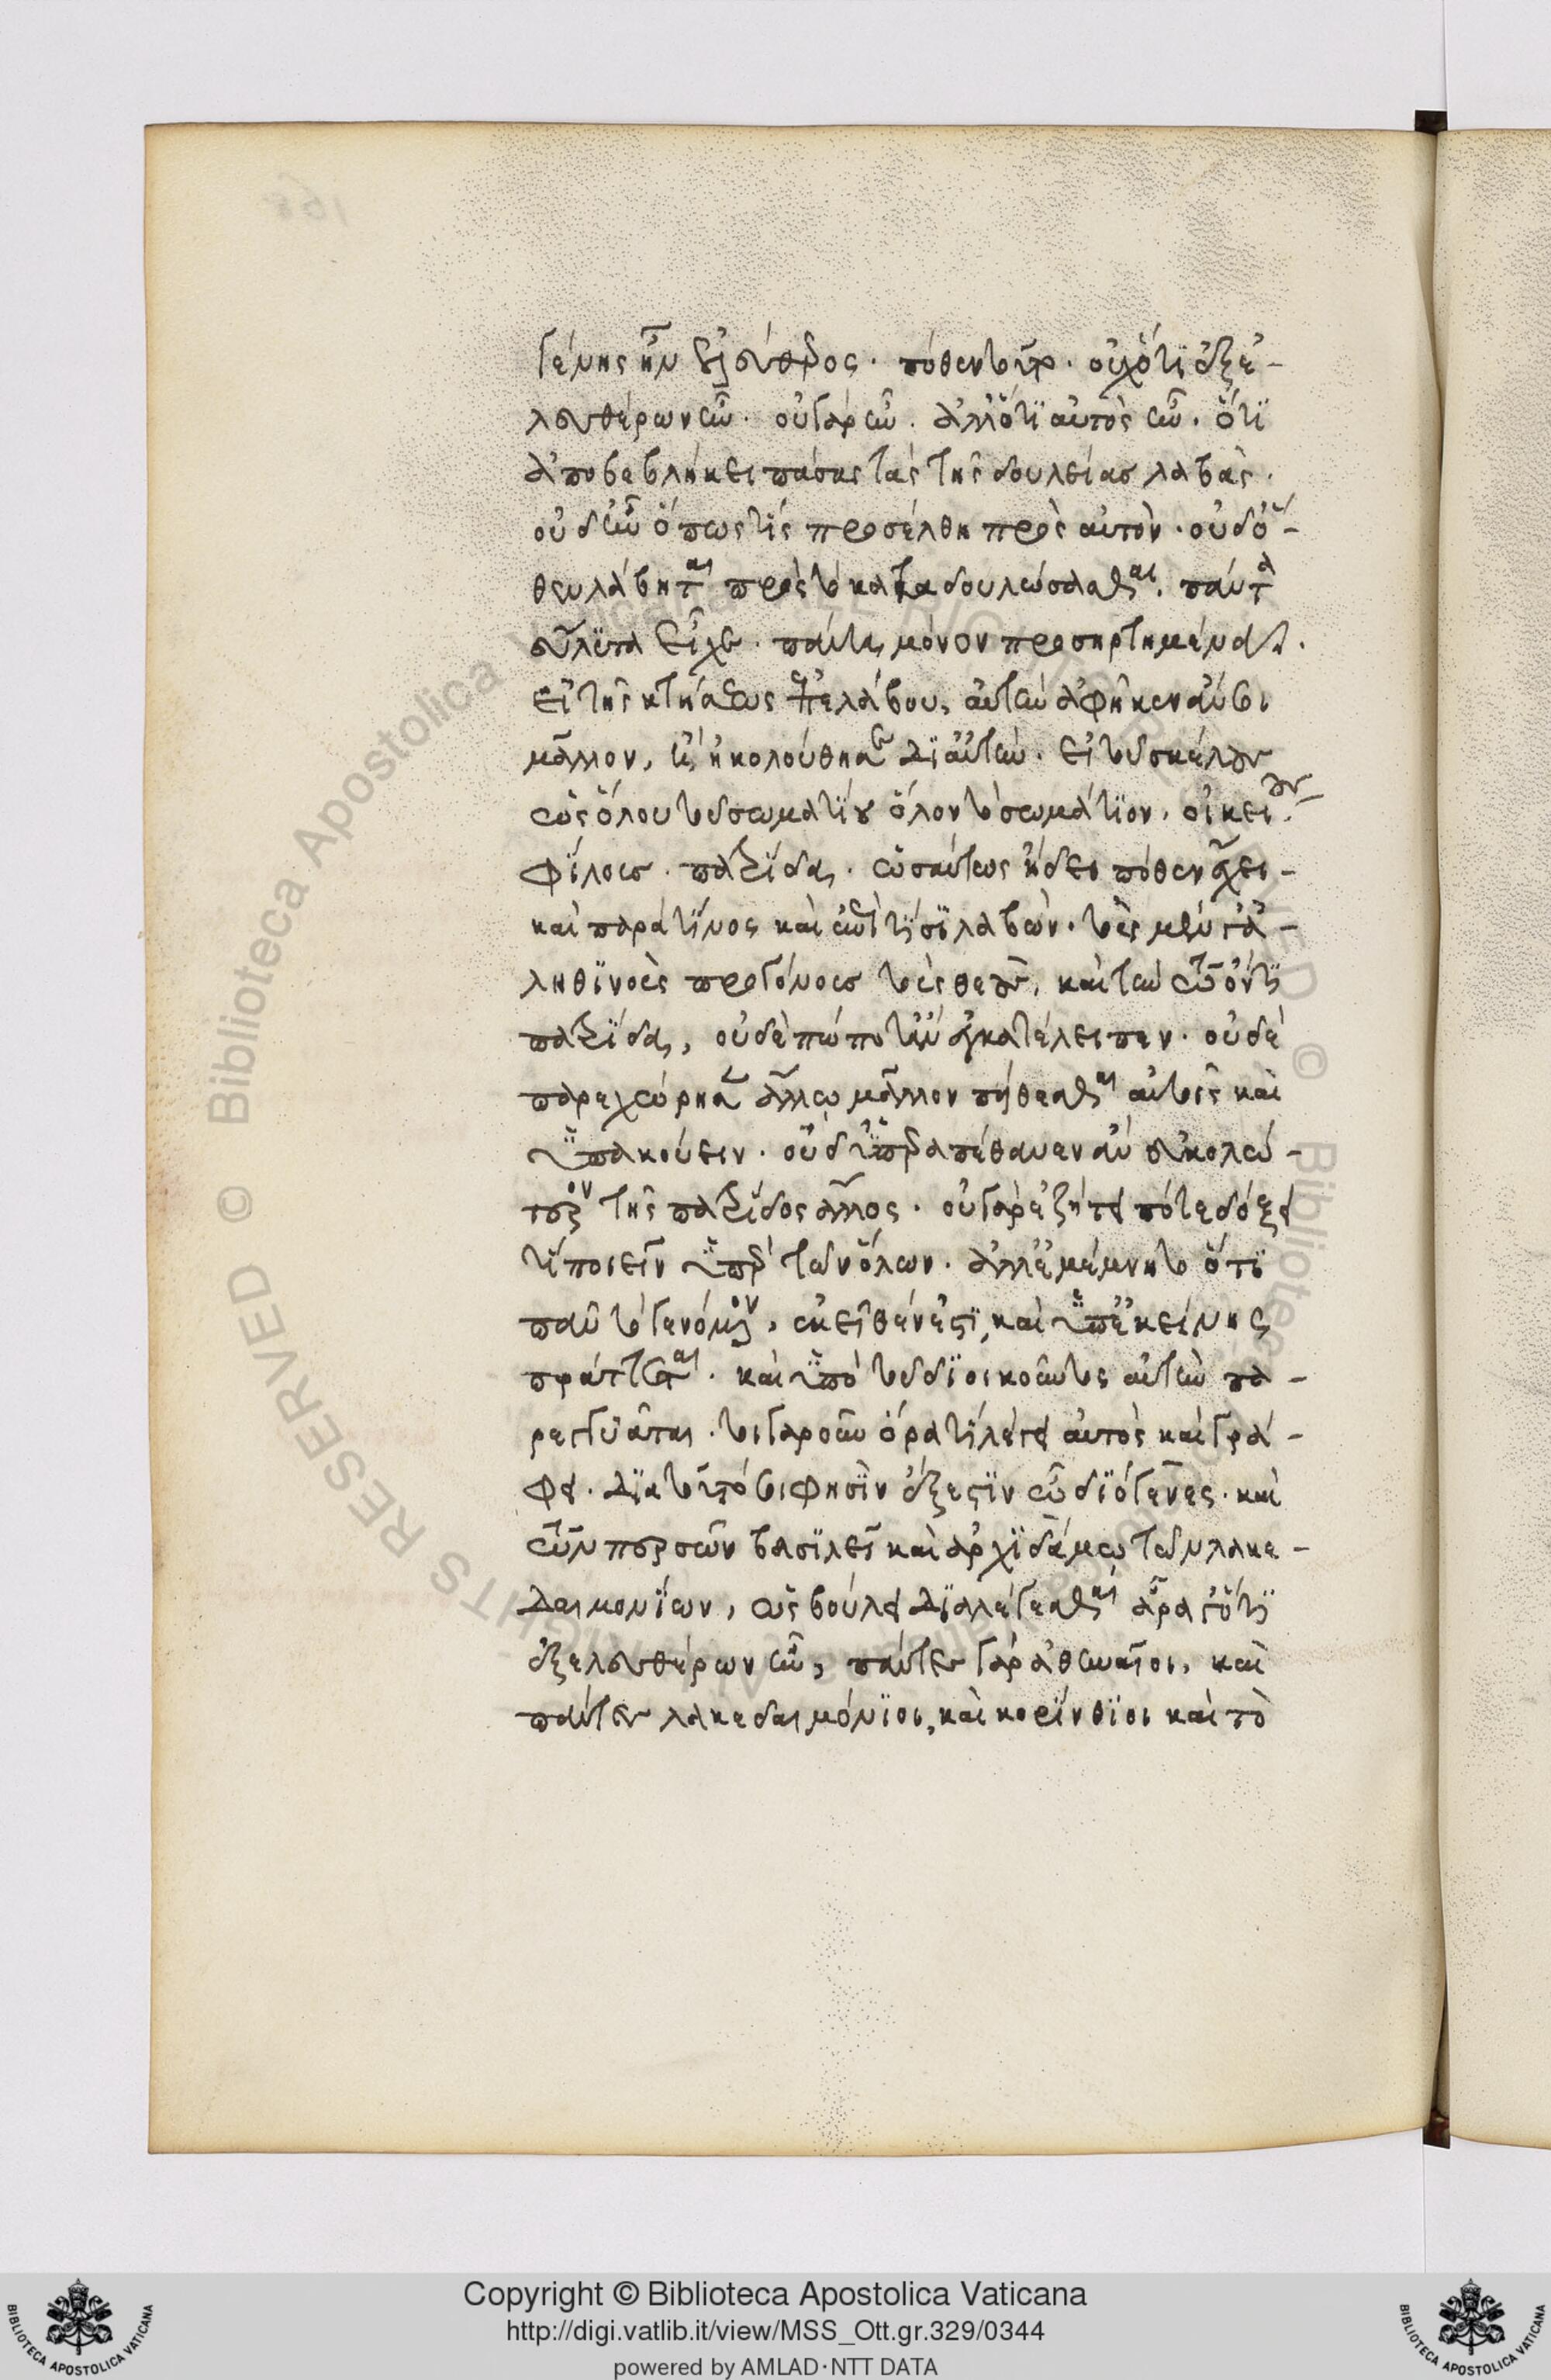 γένης ἦν ἐλεύθερος. πόθεν τοῦτο. οὐχ ὅτι ἐξ ἐ-
λευθέρων ἦν. οὐ γὰρ ἦν. ἀλλ' ὅτι αὐτὸς ἦν. ὅτι
ἀποβεβλήκει πάσας τὰς τῆς δουλείας λαβὰς.
οὐδ' ἦν ὅπως τίς προσέλθη πρὸς αὐτὸν. οὐδ' ὅ-
θεν λάβηται πρὸς τὸ καταδουλώσασθαι. πάντα
εὔλυτα εἶχε. πάντα μόνον προσηρτημένα.
εἰ τῆς κτήσεως ἐπελάβου, αὐτὴν ἀφῆκεν ἄν σοι
μᾶλλον, ἢ ἠκολούθησε δι' αὐτήν. εἰ τοῦ σκέλους
ὡς ὅλου τοῦ σωματίου ὅλον τὸ σωμάτιον. οἰκείους
φίλοις. πατρίδα. ὡσαύτως ᾔδει πόθεν ἔχει
καὶ παρὰ τίνος καὶ ἐπὶ τίσι λαβών. τοὺς μέν γ' ἀ-
ληθινοὺς προγόνους τοὺς θεοὺς, καὶ τὴν τῷ ὄντι
πατρίδα, οὐδὲ πώποτ' ἂν ἐγκατέλειπεν. οὐδὲ
παρεχώρησεν ἄλλῳ μᾶλλον πείθεσθαι αὐτοῖς καὶ
ὑπακούειν. οὐδ' ὑπεραπέθανεν ἂν εὐκολώ-
τερον τῆς πατρίδος ἄλλος. οὐ γὰρ ἐζήτει πότε δόξει
τι ποιεῖν ὑπὲρ τῶν ὅλων. ἀλλ' ἐμέμνητο ὅτι
πᾶν τὸ γενόμενον, ἐκεῖθέν ἐστι, καὶ ὑπὲρ ἐκείνης
πράττεται. καὶ ὑπὸ τοῦ διοικοῦντος αὐτὴν πα-
ρεγγυᾶται. τοιγαροῦν ὅρα τί λέγει αὐτὸς καὶ γρά-
φει. διὰ τοῦτό σοι φησὶν ἔξεστιν ὦ διόγενες. καὶ
τῷ περσῶν βασιλεῖ καὶ ἀρχιδάμῳ τῷ λακε-
δαιμονίων, ὡς βούλει διαλέγεσθαι ἆρά γ' ὅτι
ἐξ ἐλευθέρων ἦν, πάντες γὰρ ἀθηναῖοι, καὶ
πάντες λακεδαιμόνιοι, καὶ κορίνθιοι καὶ τὸ
Copyright © Biblioteca Apostolica Vaticana
http://digi.vatlib.it/view/MSS_Ott.gr.329/0344
powered by AMLAD·NTT DATA